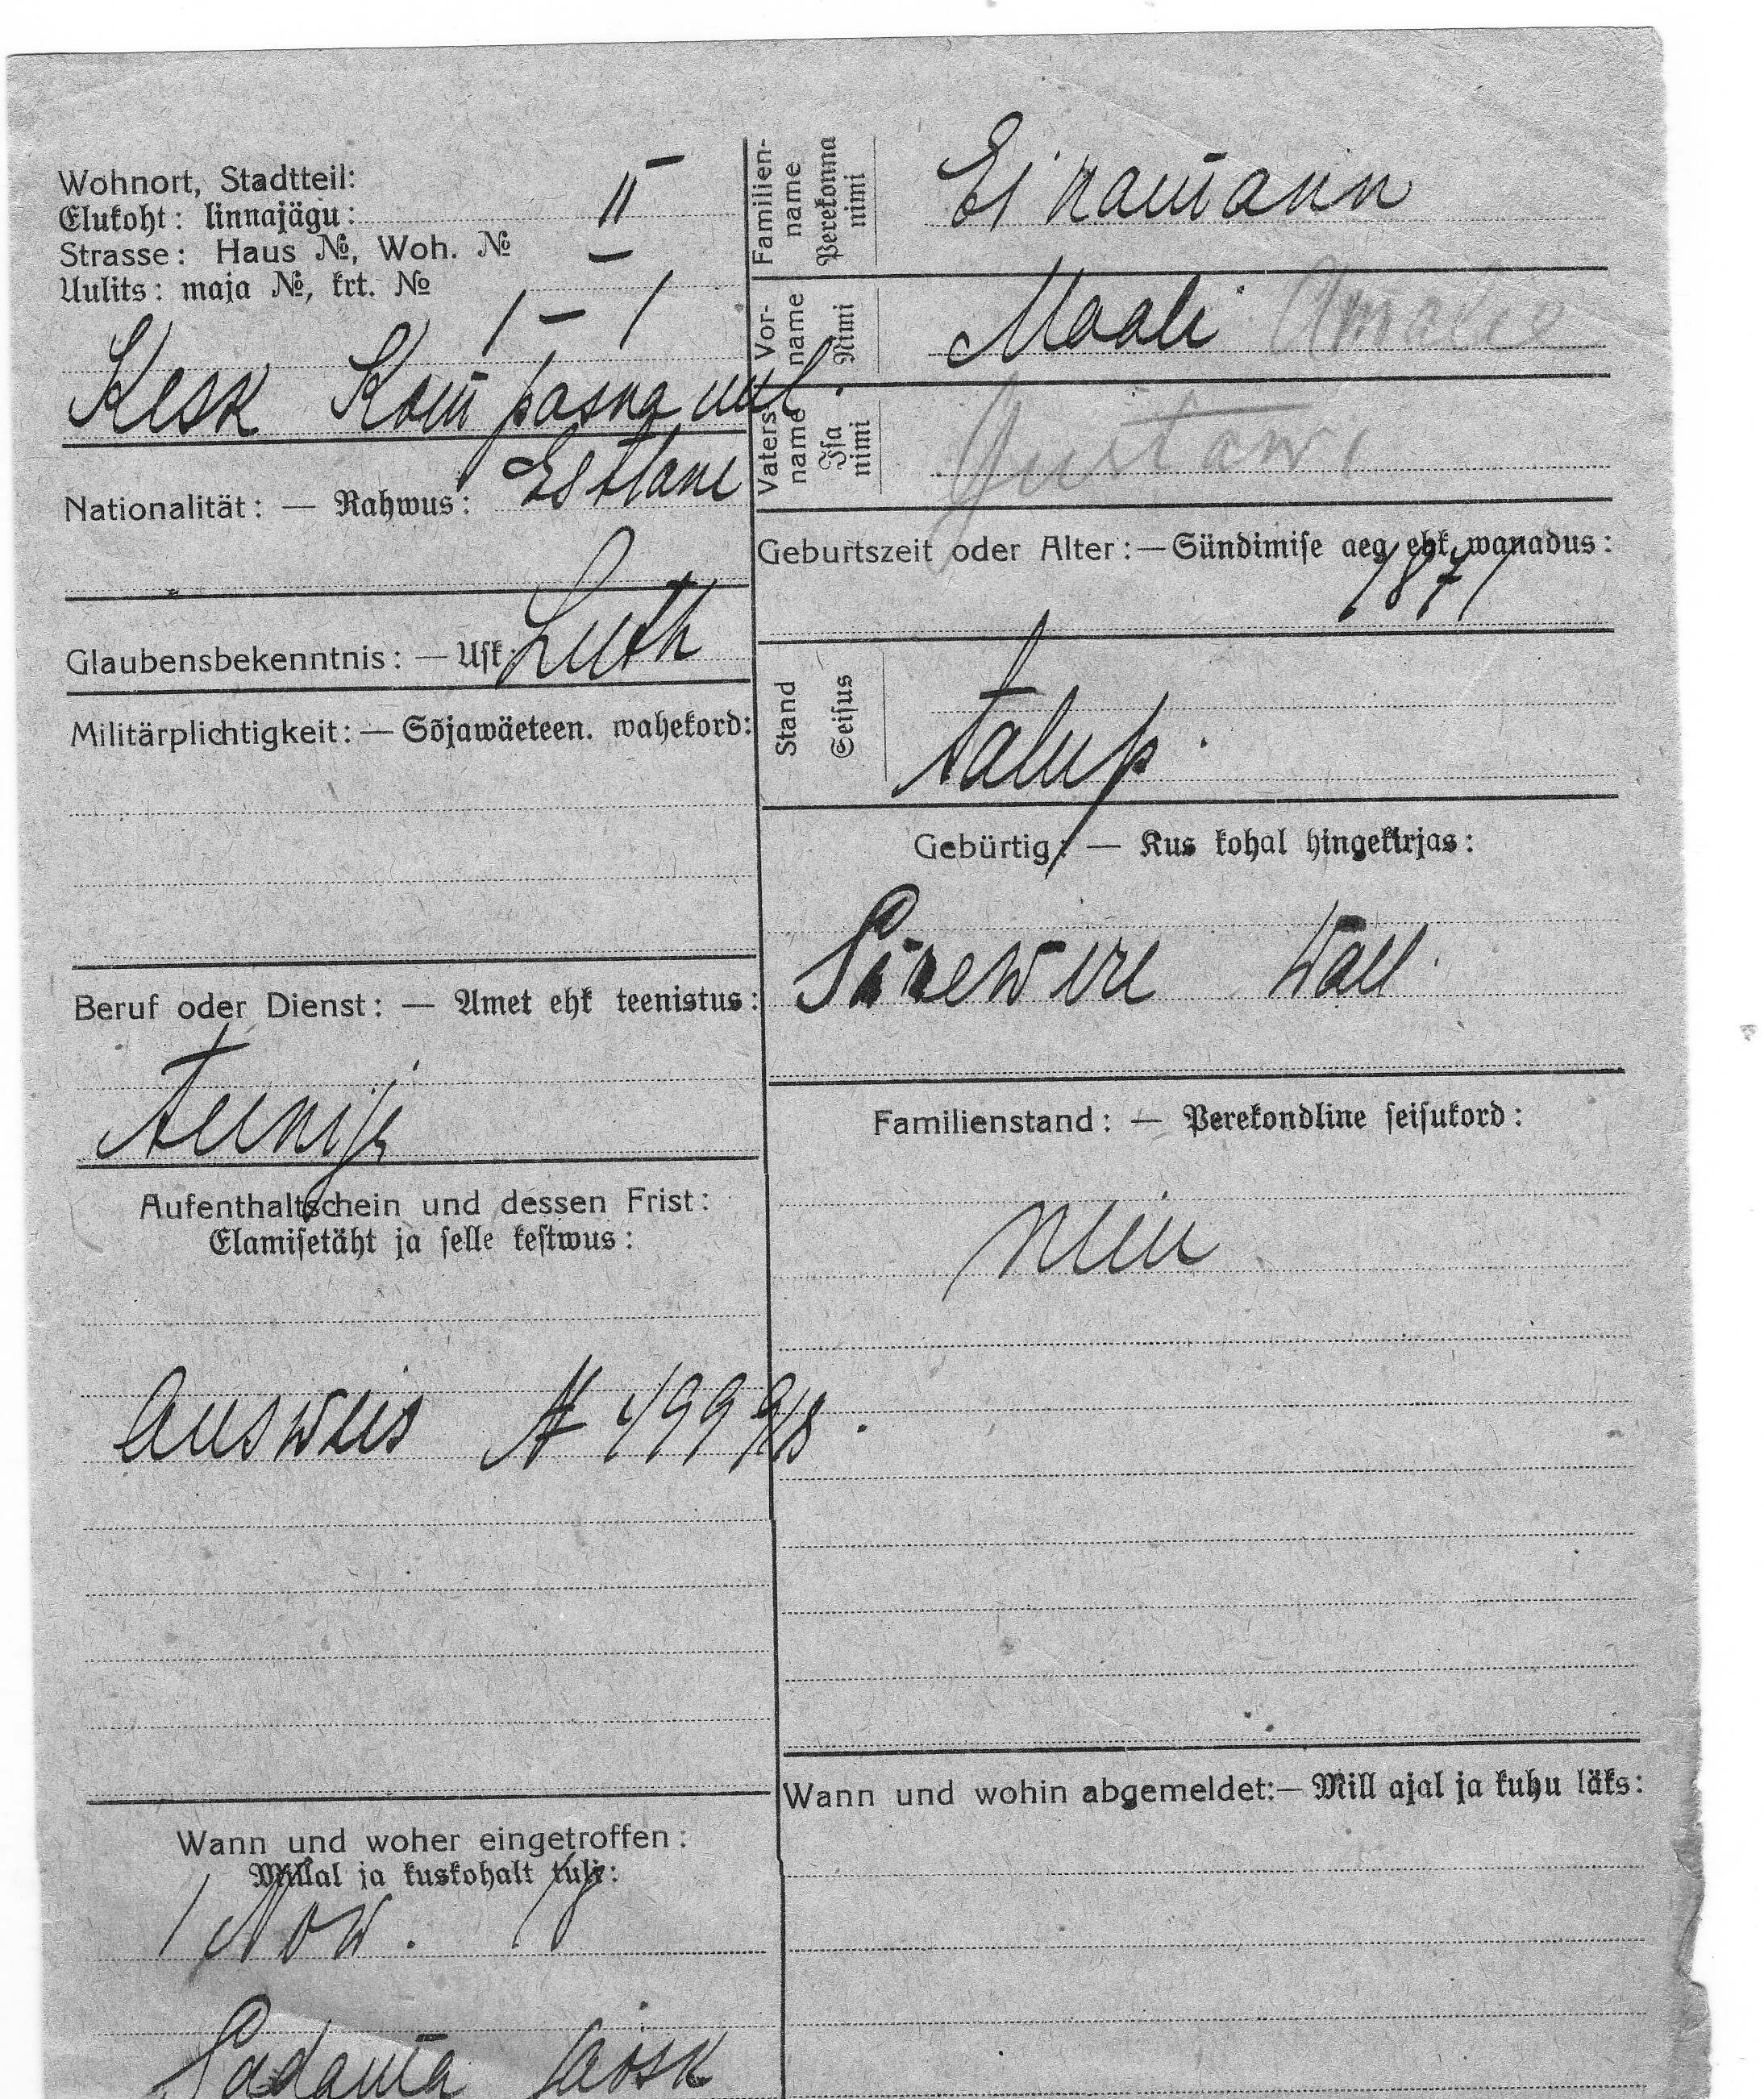 Wohnort, Stadtteil:
Elukoht: linnajägu: II
Strasse: Haus №, Woh. №
Uulits: maja №, krt. №
1 – 1
Kesk Kompasna uul.
Nationalität: — Rahwus: Estlane
Glaubensbekenntnis: — Usk: Luth
Militärplichtigkeit: — Sõjawäeteen. wahekord:
Beruf oder Dienst: — Amet ehk teenistus:
Teenija
Aufenthaltschein und dessen Frist:
Elamisetäht ja selle kestwus:
Ausweis A 49998.
Wann und woher eingetroffen:
Millal ja kuskohalt tuli:
1 Now. 18
Sadama
Familien-name
Perekonna nimi
Einamann
Vor-name
Nimi
Maali Amalie
Vaters name
Isa nimi
Gustaw
Geburtszeit oder Alter: — Sündimise aeg ehk wanadus:
1871
Stand
Seisus
talup.
Gebürtig: — Kus kohal hingekirjas:
Wall.
Familienstand: — Perekondline seisukord:
Wann und wohin abgemeldet: — Mill ajal ja kuhu läks: